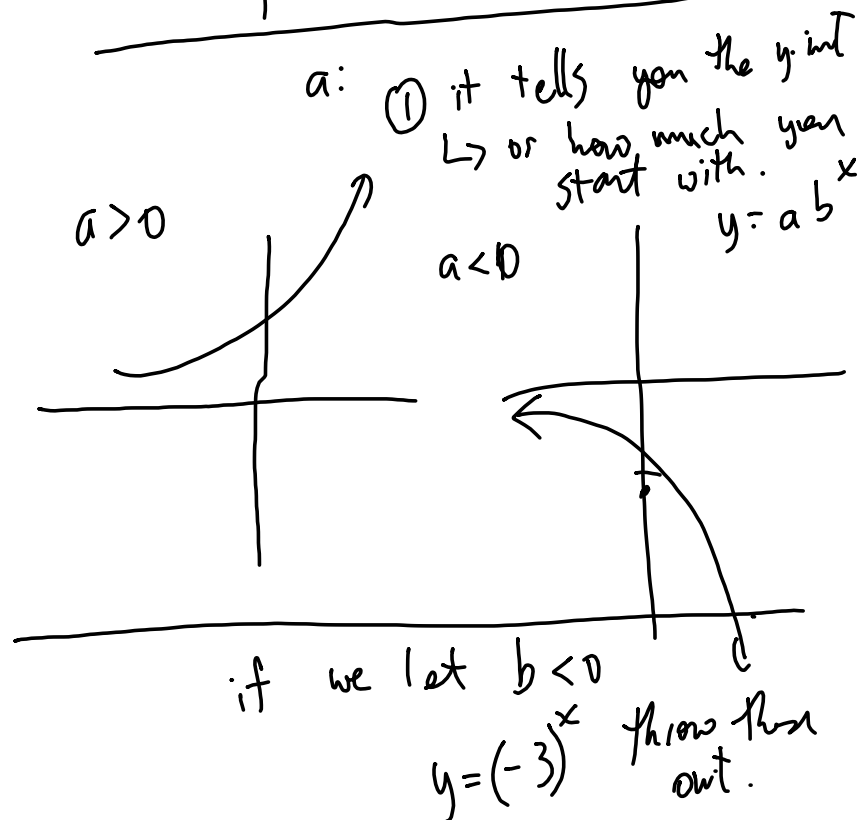 a: ① it tells you the y.int
↳ or how much you
start with.
y = ab^x
a>0
a<0
if we let b<0
y=(-3)^x throw these
out.